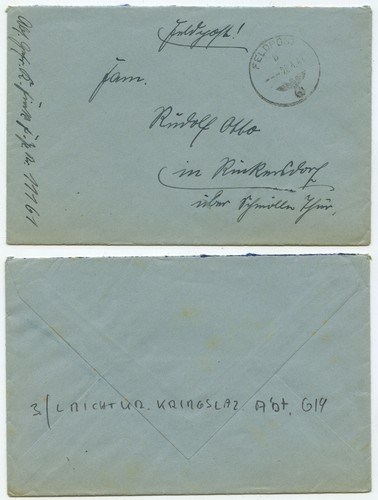 Feldpost!
FELDPOST
Fam.
Rudolf Otto
in Rückersdorf
über Schmölln Thür.
Abs. Gefr. R. F. P. N. 11161
3/ LAICHTKR. KRIGSLAZ. Abt. 614